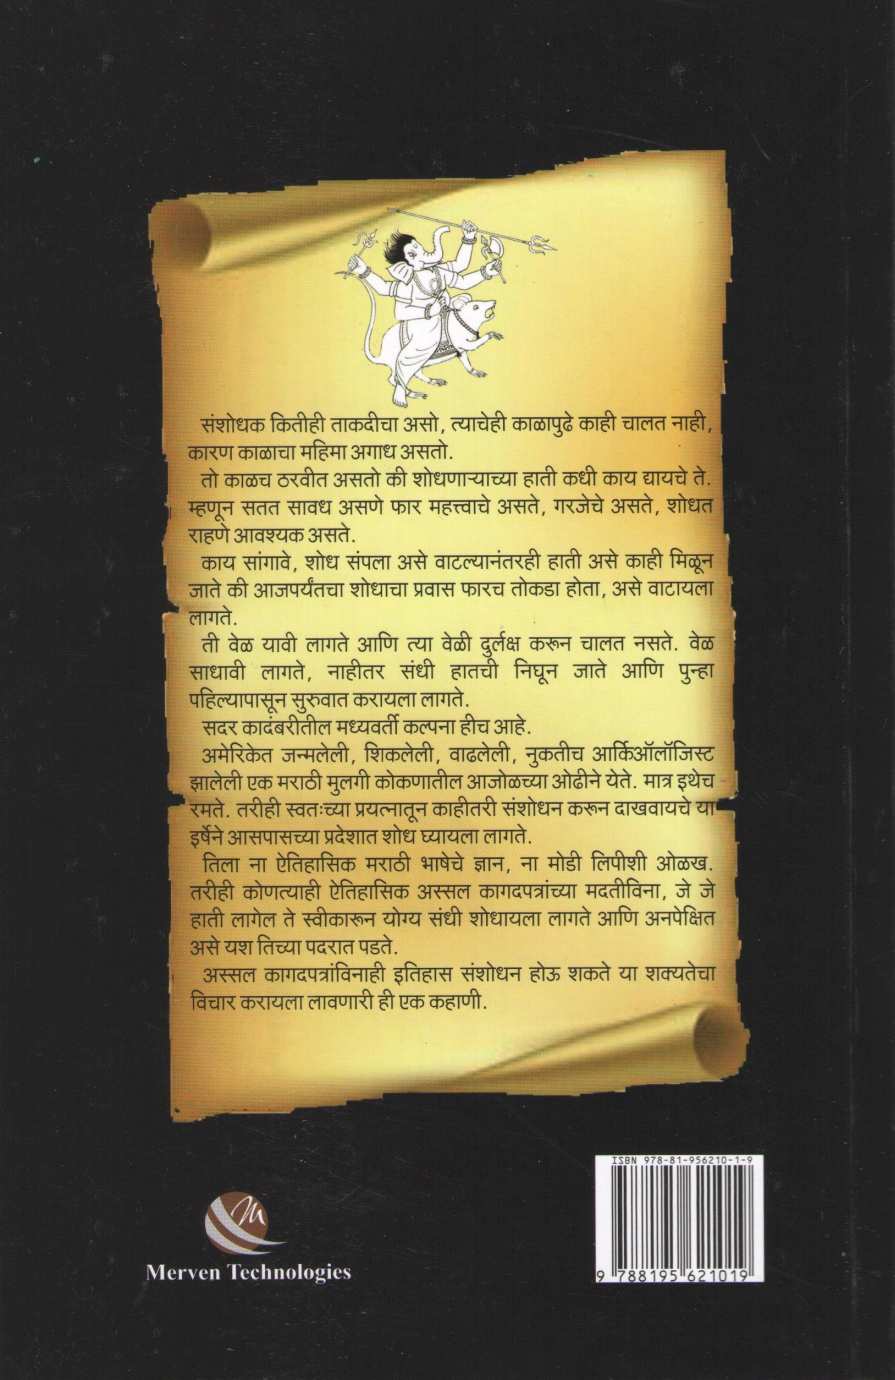 संशोधक कितीही ताकदीचा असो, त्याचेही काळापुढे काही चालत नाही,
कारण काळाचा महिमा अगाध असतो.
तो काळच ठरवीत असतो की शोधणाऱ्याच्या हाती कधी काय द्यायचे ते.
म्हणून सतत सावध असणे फार महत्त्वाचे असते, गरजेचे असते, शोधत
राहणे आवश्यक असते.
काय सांगावे, शोध संपला असे वाटल्यानंतरही हाती असे काही मिळून
जाते की आजपर्यंतचा शोधाचा प्रवास फारच तोकडा होता, असे वाटायला
लागते.
ती वेळ यावी लागते आणि त्या वेळी दुर्लक्ष करून चालत नसते. वेळ
साधावी लागते, नाहीतर संधी हातची निघून जाते आणि पुन्हा
पहिल्यापासून सुरुवात करायला लागते.
सदर कादंबरीतील मध्यवर्ती कल्पना हीच आहे.
अमेरिकेत जन्मलेली, शिकलेली, वाढलेली, नुकतीच आर्किऑलॉजिस्ट
झालेली एक मराठी मुलगी कोकणातील आजोळच्या ओढीने येते. मात्र इथेच
रमते. तरीही स्वतःच्या प्रयत्नातून काहीतरी संशोधन करून दाखवायचे या
इर्षेने आसपासच्या प्रदेशात शोध घ्यायला लागते.
तिला ना ऐतिहासिक मराठी भाषेचे ज्ञान, ना मोडी लिपीशी ओळख.
तरीही कोणत्याही ऐतिहासिक अस्सल कागदपत्रांच्या मदतीविना, जे जे
हाती लागेल ते स्वीकारून योग्य संधी शोधायला लागते आणि अनपेक्षित
असे यश तिच्या पदरात पडते.
अस्सल कागदपत्रांविनाही इतिहास संशोधन होऊ शकते या शक्यतेचा
विचार करायला लावणारी ही एक कहाणी.
ISBN 978-81-956210-1-9
9 788195 621019
M
Merven Technologies